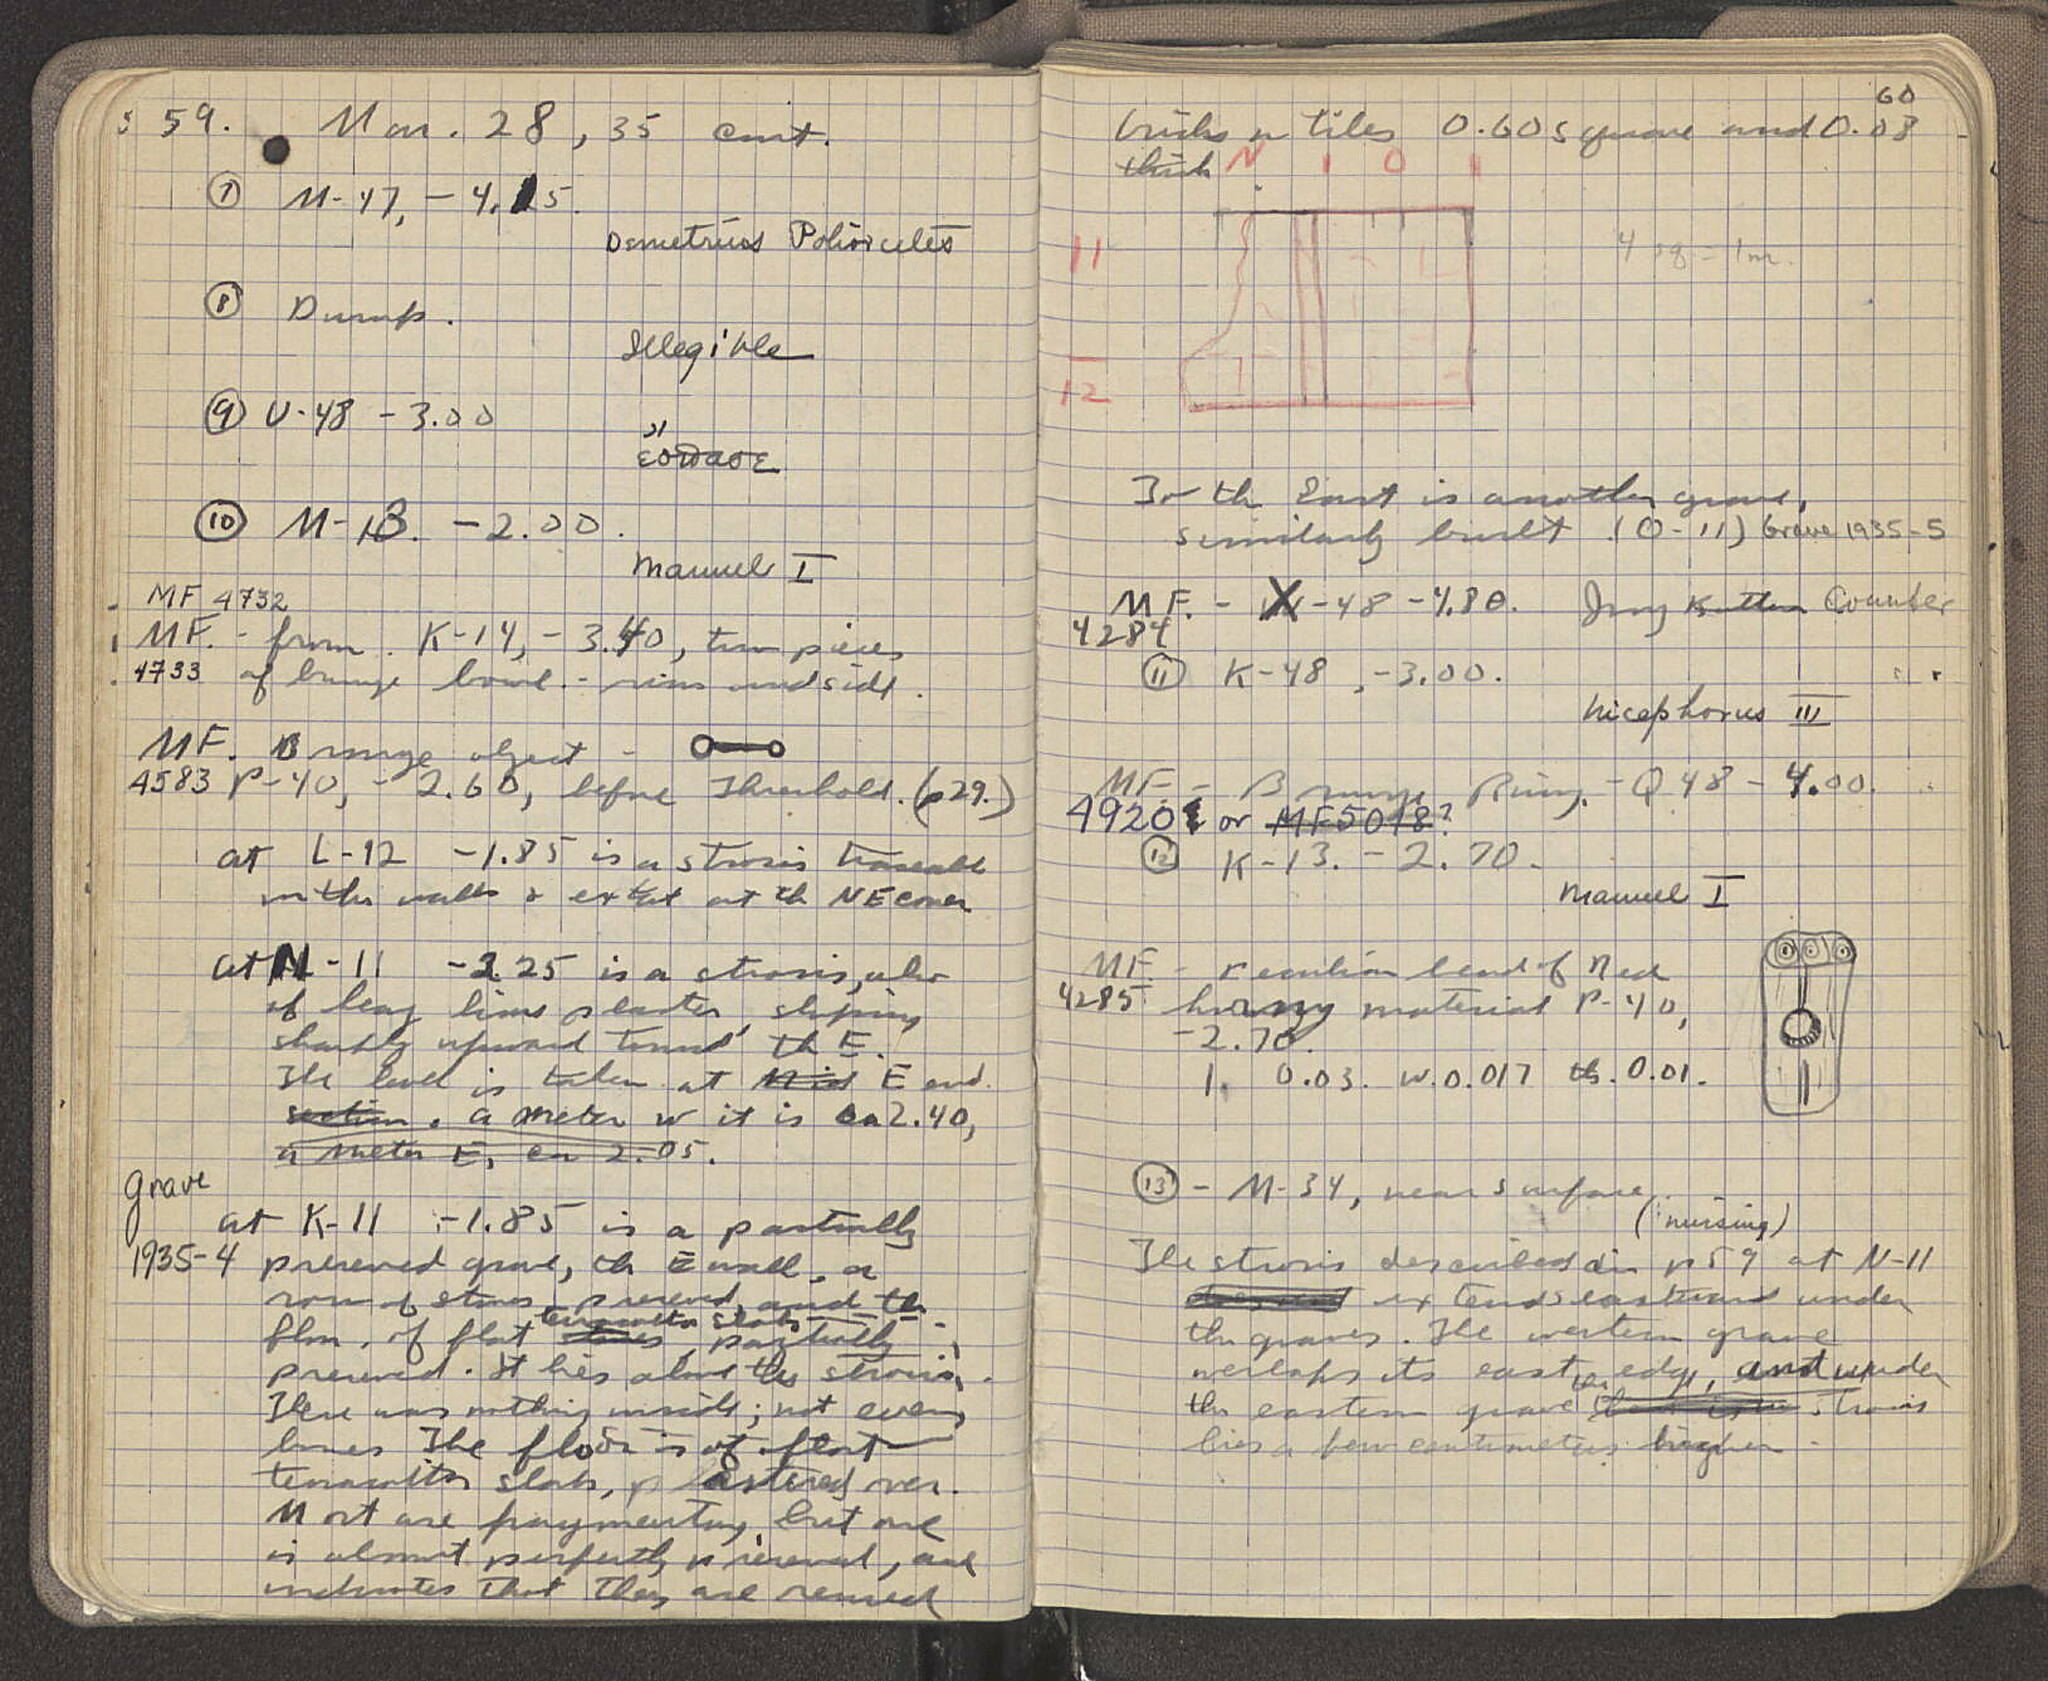 59. Mar. 28, 35 cont.
⑦ M-47, -4.15.
Demetrius Poliorcetes
⑧ Dump.
Illegible
⑨ U-48 -3.00
⑩ M-13. -2.00.
Manuel I
MF 4732
MF. - from K-14, -3.40, two pieces
4733 of bronze bowl - rim and side.
MF. Bronze object -
4583 P-40, -2.60, before Threshold. (p29.)
at L-12 -1.85 is a strosis traceable
in the walls & extant at th NE corner
at N-11 -2.25 is a strosis, also
of lime plaster, sloping
sharply upward toward th E.
The level is taken at Mid E end.
section. a meter W it is ca 2.40,
a meter E, ca 2.05.
grave
at K-11 -1.85 is a partially
1935-4 preserved grave, th E wall, a
row of stones, preserved, and the
terracotta slabs
floor, of flat tiles, partially
preserved. It lies above the strosis.
There was nothing inside; not even
bones The floor is of flat
terracotta slabs, plastered over.
Most are fragmentary, but one
is almost perfectly preserved, and
indicates that they are reused
60
bricks or tiles 0.60 square and 0.03
thick N 1 O 1
11
4 sq = 1m.
12
To th East is another grave,
similarly built (O-11) Grave 1935-5
MF. - X-48 -4.80. Ivory Button Counter
4284
⑪ K-48, -3.00.
Nicephorus III
MF. - Bronze Ring. - Q 48 - 4.00.
4920 or MF5018?
⑫ K-13. - 2.70.
Manuel I
MF - bead of Red
4285 horny material P-40,
-2.70.
l. 0.03. w. 0.017 th. 0.01.
⑬ - M-34, near surface.
(missing)
The strosis described in p59 at N-11
extends eastward under
the graves. The western grave
overlaps its eastern edge, and under
the eastern grave strosis
lies a few centimeters higher.